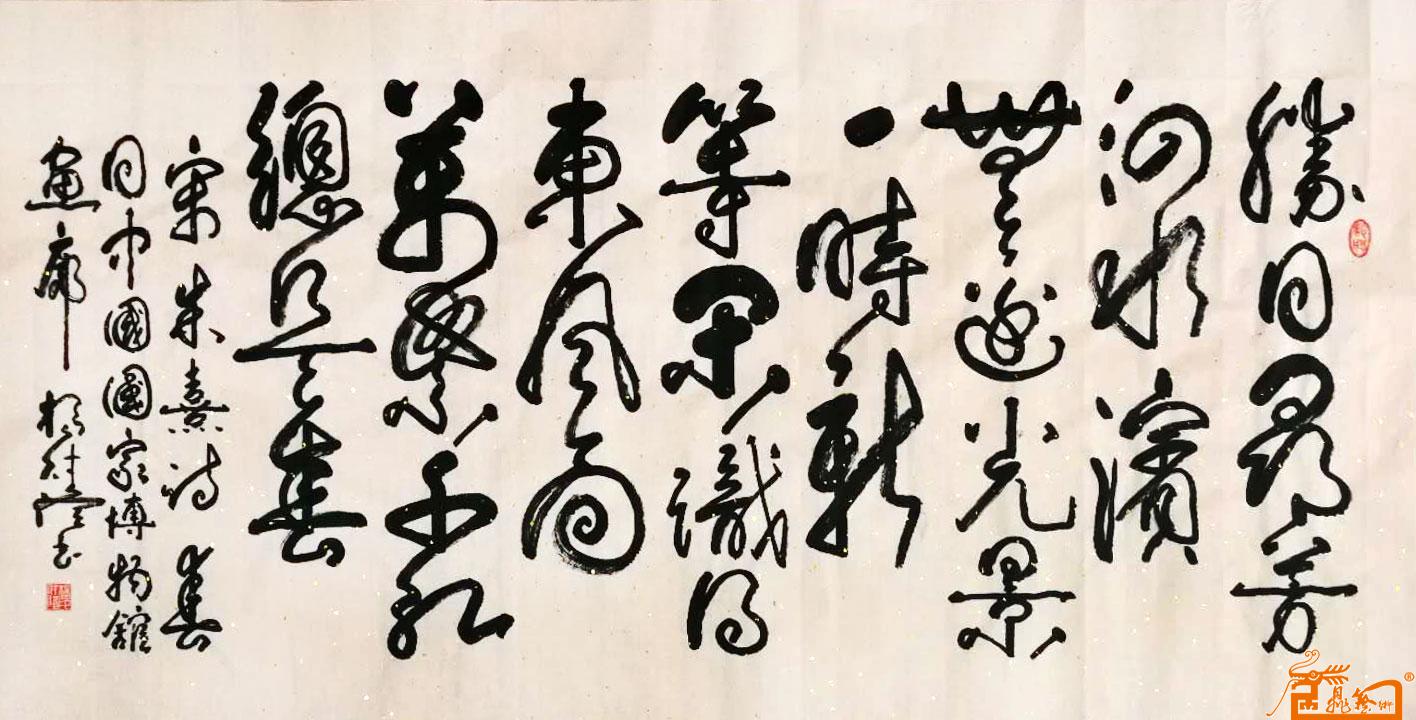 勝日尋芳
泗水濱
無邊光景
一時新
等閑識得
東風面
萬紫千紅
總是春
宋朱熹詩 春
日 中國國家博物館
畫廊 書